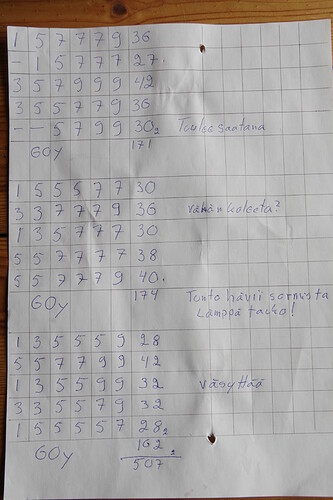 1 5 7 7 7 9 36
- 1 5 7 7 7 27.
3 5 7 9 9 9 42
3 5 5 7 7 9 36
- - 5 7 9 9 30 2 Tuulee saatana
60y 171
1 5 5 5 7 7 30
3 3 7 7 7 9 36 Vähän koleeta?
1 3 5 7 7 7 30
5 5 7 7 7 7 38
5 5 7 7 7 9 40.
60y 174 Tunto hävii sormista
Lämppä tauko!
1 3 5 5 5 9 28
5 5 7 7 9 9 42
1 3 5 5 9 9 32 Väsyttää
3 3 5 5 7 9 32
1 5 5 5 5 7 28 2
60y 162 2
507